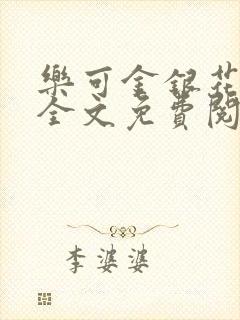 樂可金銀花
全文免費閱
李婆婆